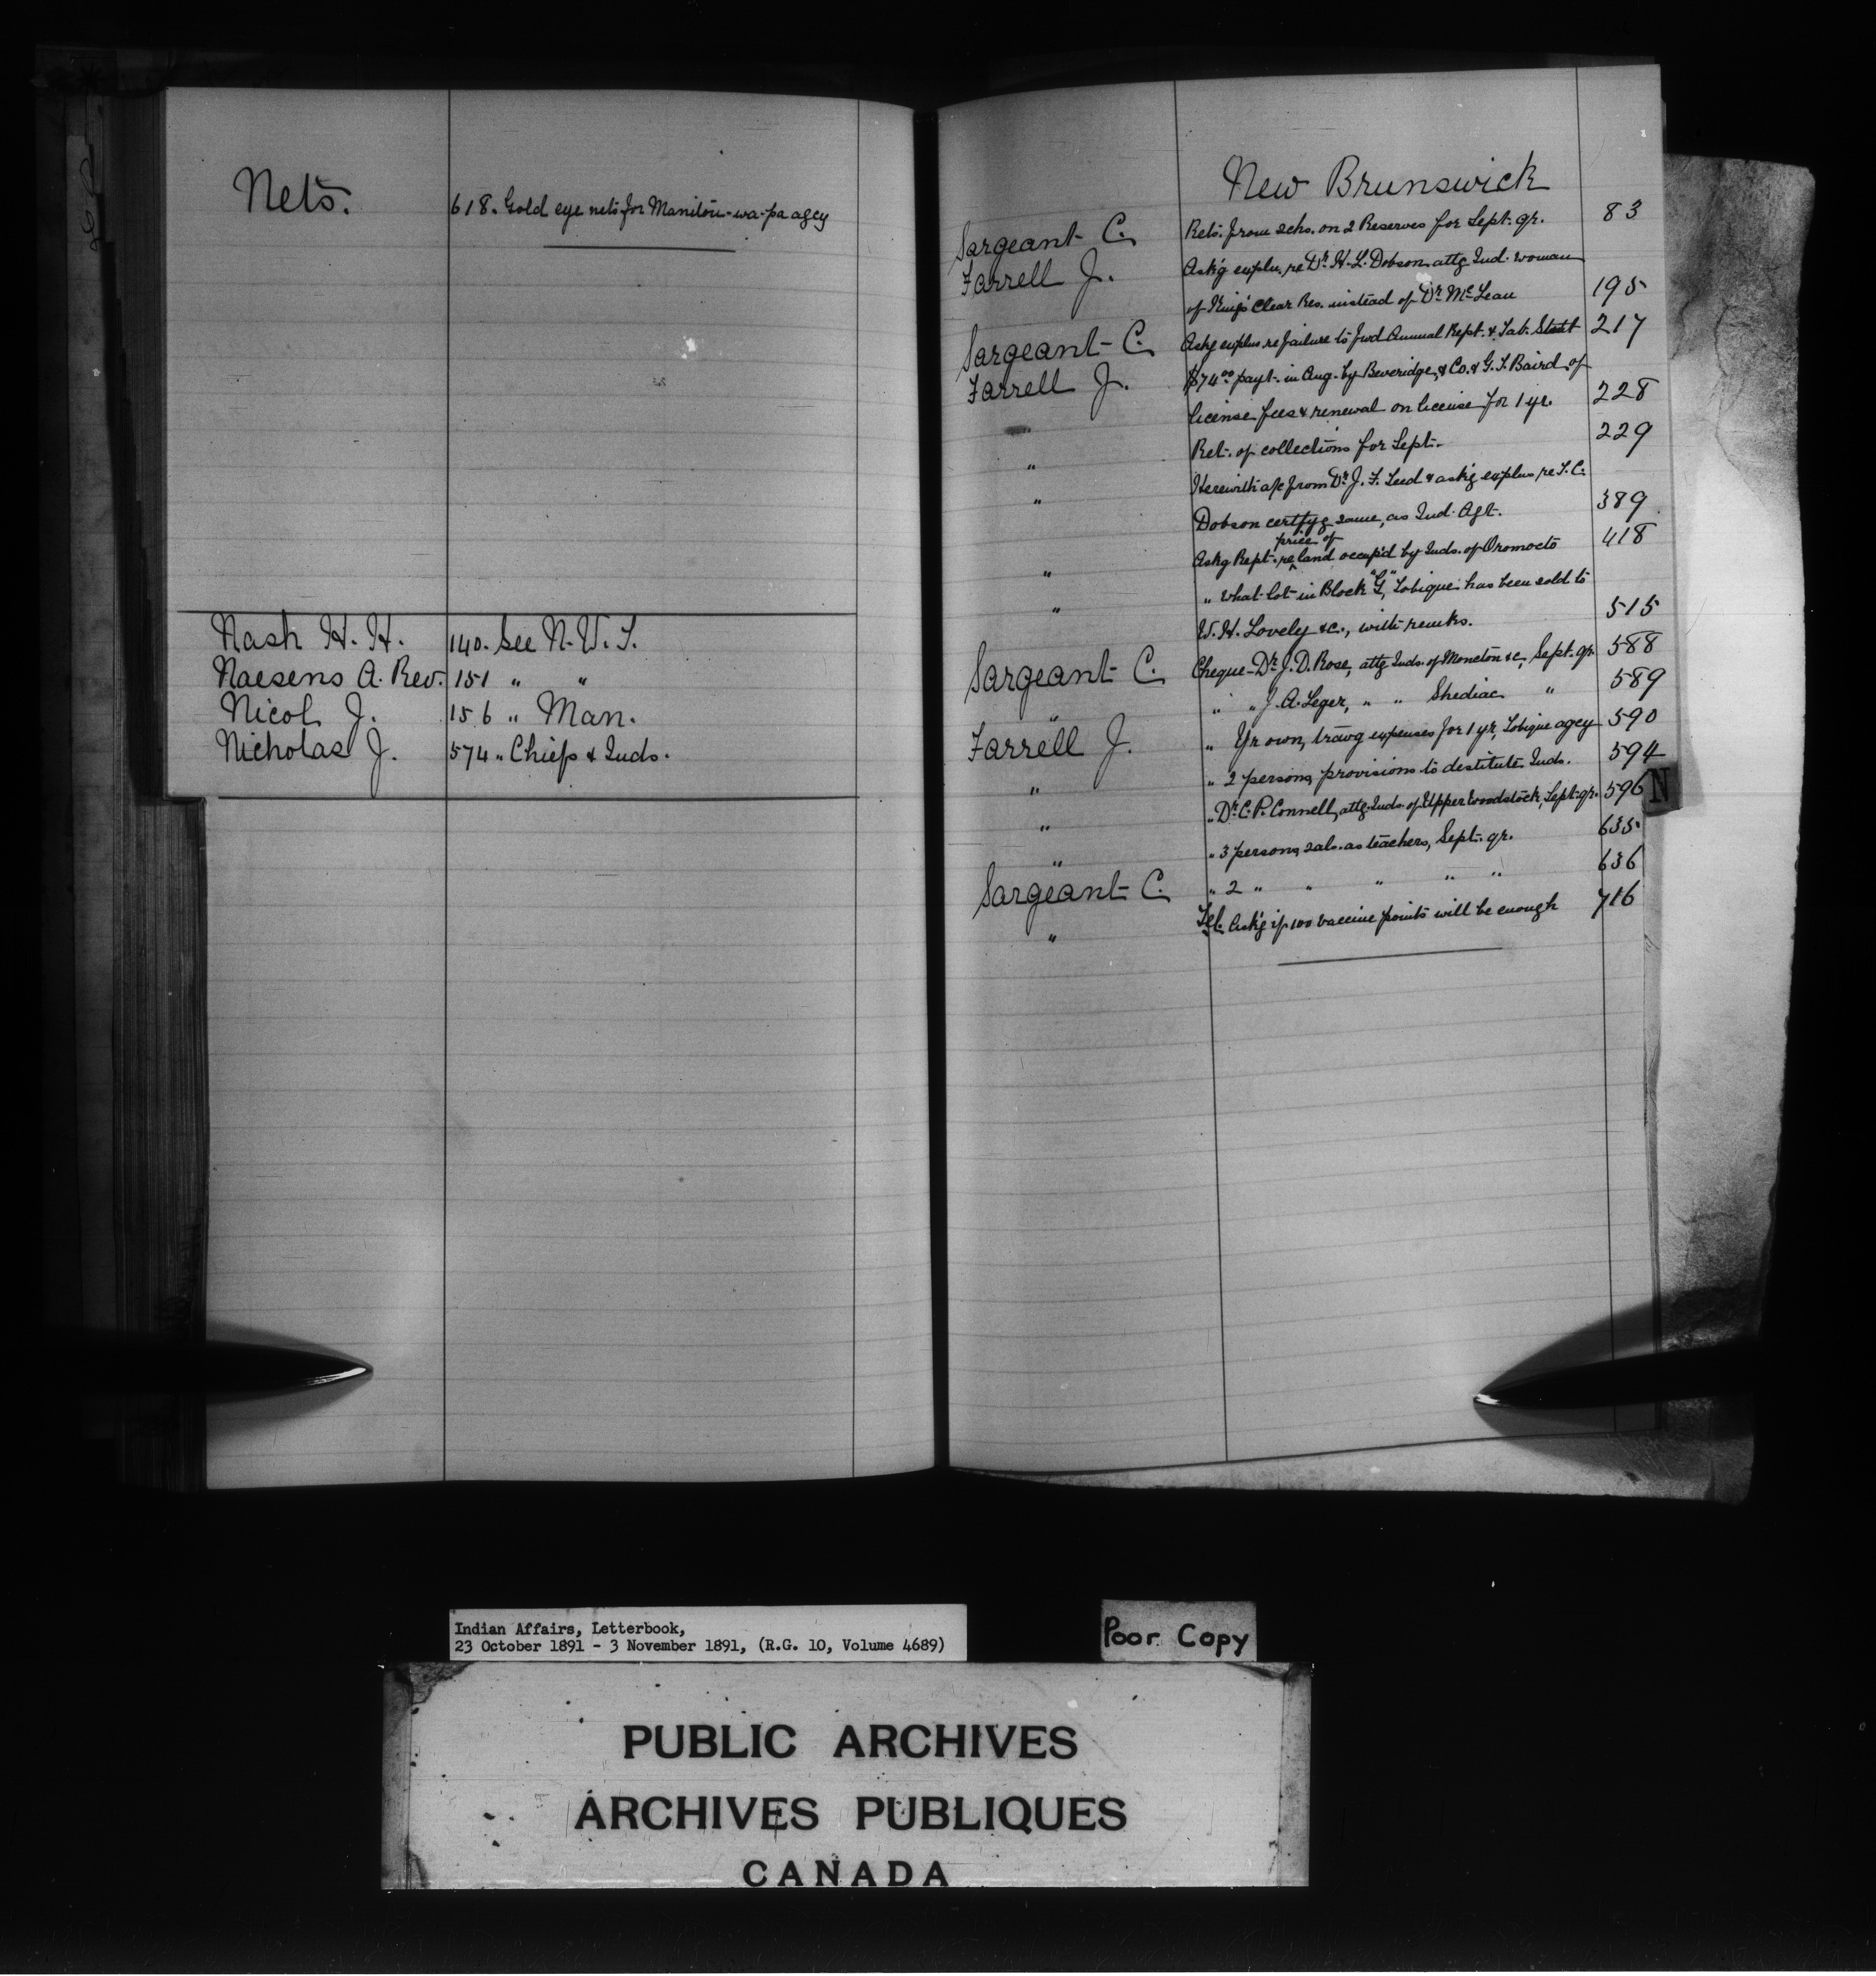 Nets. 618. Gold eye nets for Manitou-wa-pa agcy
Nash H. H. 140. See N. W. T.
Naesens A. Rev. 151 " "
Nicol J. 156 " Man.
Nicholas J. 574 " Chiefs & Inds.
New Brunswick
Sargeant C. Rets. from schs. on 2 Reserves for Sept. qr. 83
Farrell J. Ask'g expln. re Dr. H. L. Dobson attg Ind. woman
of King's Clear Res. instead of Dr. McLean 195
Sargeant C. Askg explns re failure to fwd Annual Rept. & Tab. Statt 217
Farrell J. $74.00 payt. in Aug. by Beveridge & Co. & G. T. Baird of
license fees & renewal on license for 1 yr. 228
" Ret. of collections for Sept. 229
" Herewith a/c from Dr. J. F. & ask'g explns re T. C.
Dobson certfyg same, as Ind. Agt. 389
" Askg Rept. re price of land occup'd by Inds. of Oromocto 418
" " what lot in Block "G", Tobique has been sold to
W. H. Lovely &c., with remks. 515
Sargeant C. Cheque - Dr. J. D. Ross, attg Inds. of Moncton &c, Sept. qr. 588
" " " J. A. Leger, " " Shediac " 589
Farrell J. " Yr own, travg expenses for 1 yr, Tobique agcy 590
" " 2 persons, provisions to destitute Inds. 594
" " Dr. C. P. Connell, attg Inds. of Upper Woodstock, Sept. qr. 596
" " 3 persons, sals. as teachers, Sept. qr. 635
Sargeant C. " 2 " " " " " 636
" Tel. Ask'g if 100 vaccine points will be enough 716
N
Indian Affairs, Letterbook,
23 October 1891 - 3 November 1891, (R.G. 10, Volume 4689)
Poor Copy
PUBLIC ARCHIVES
ARCHIVES PUBLIQUES
CANADA